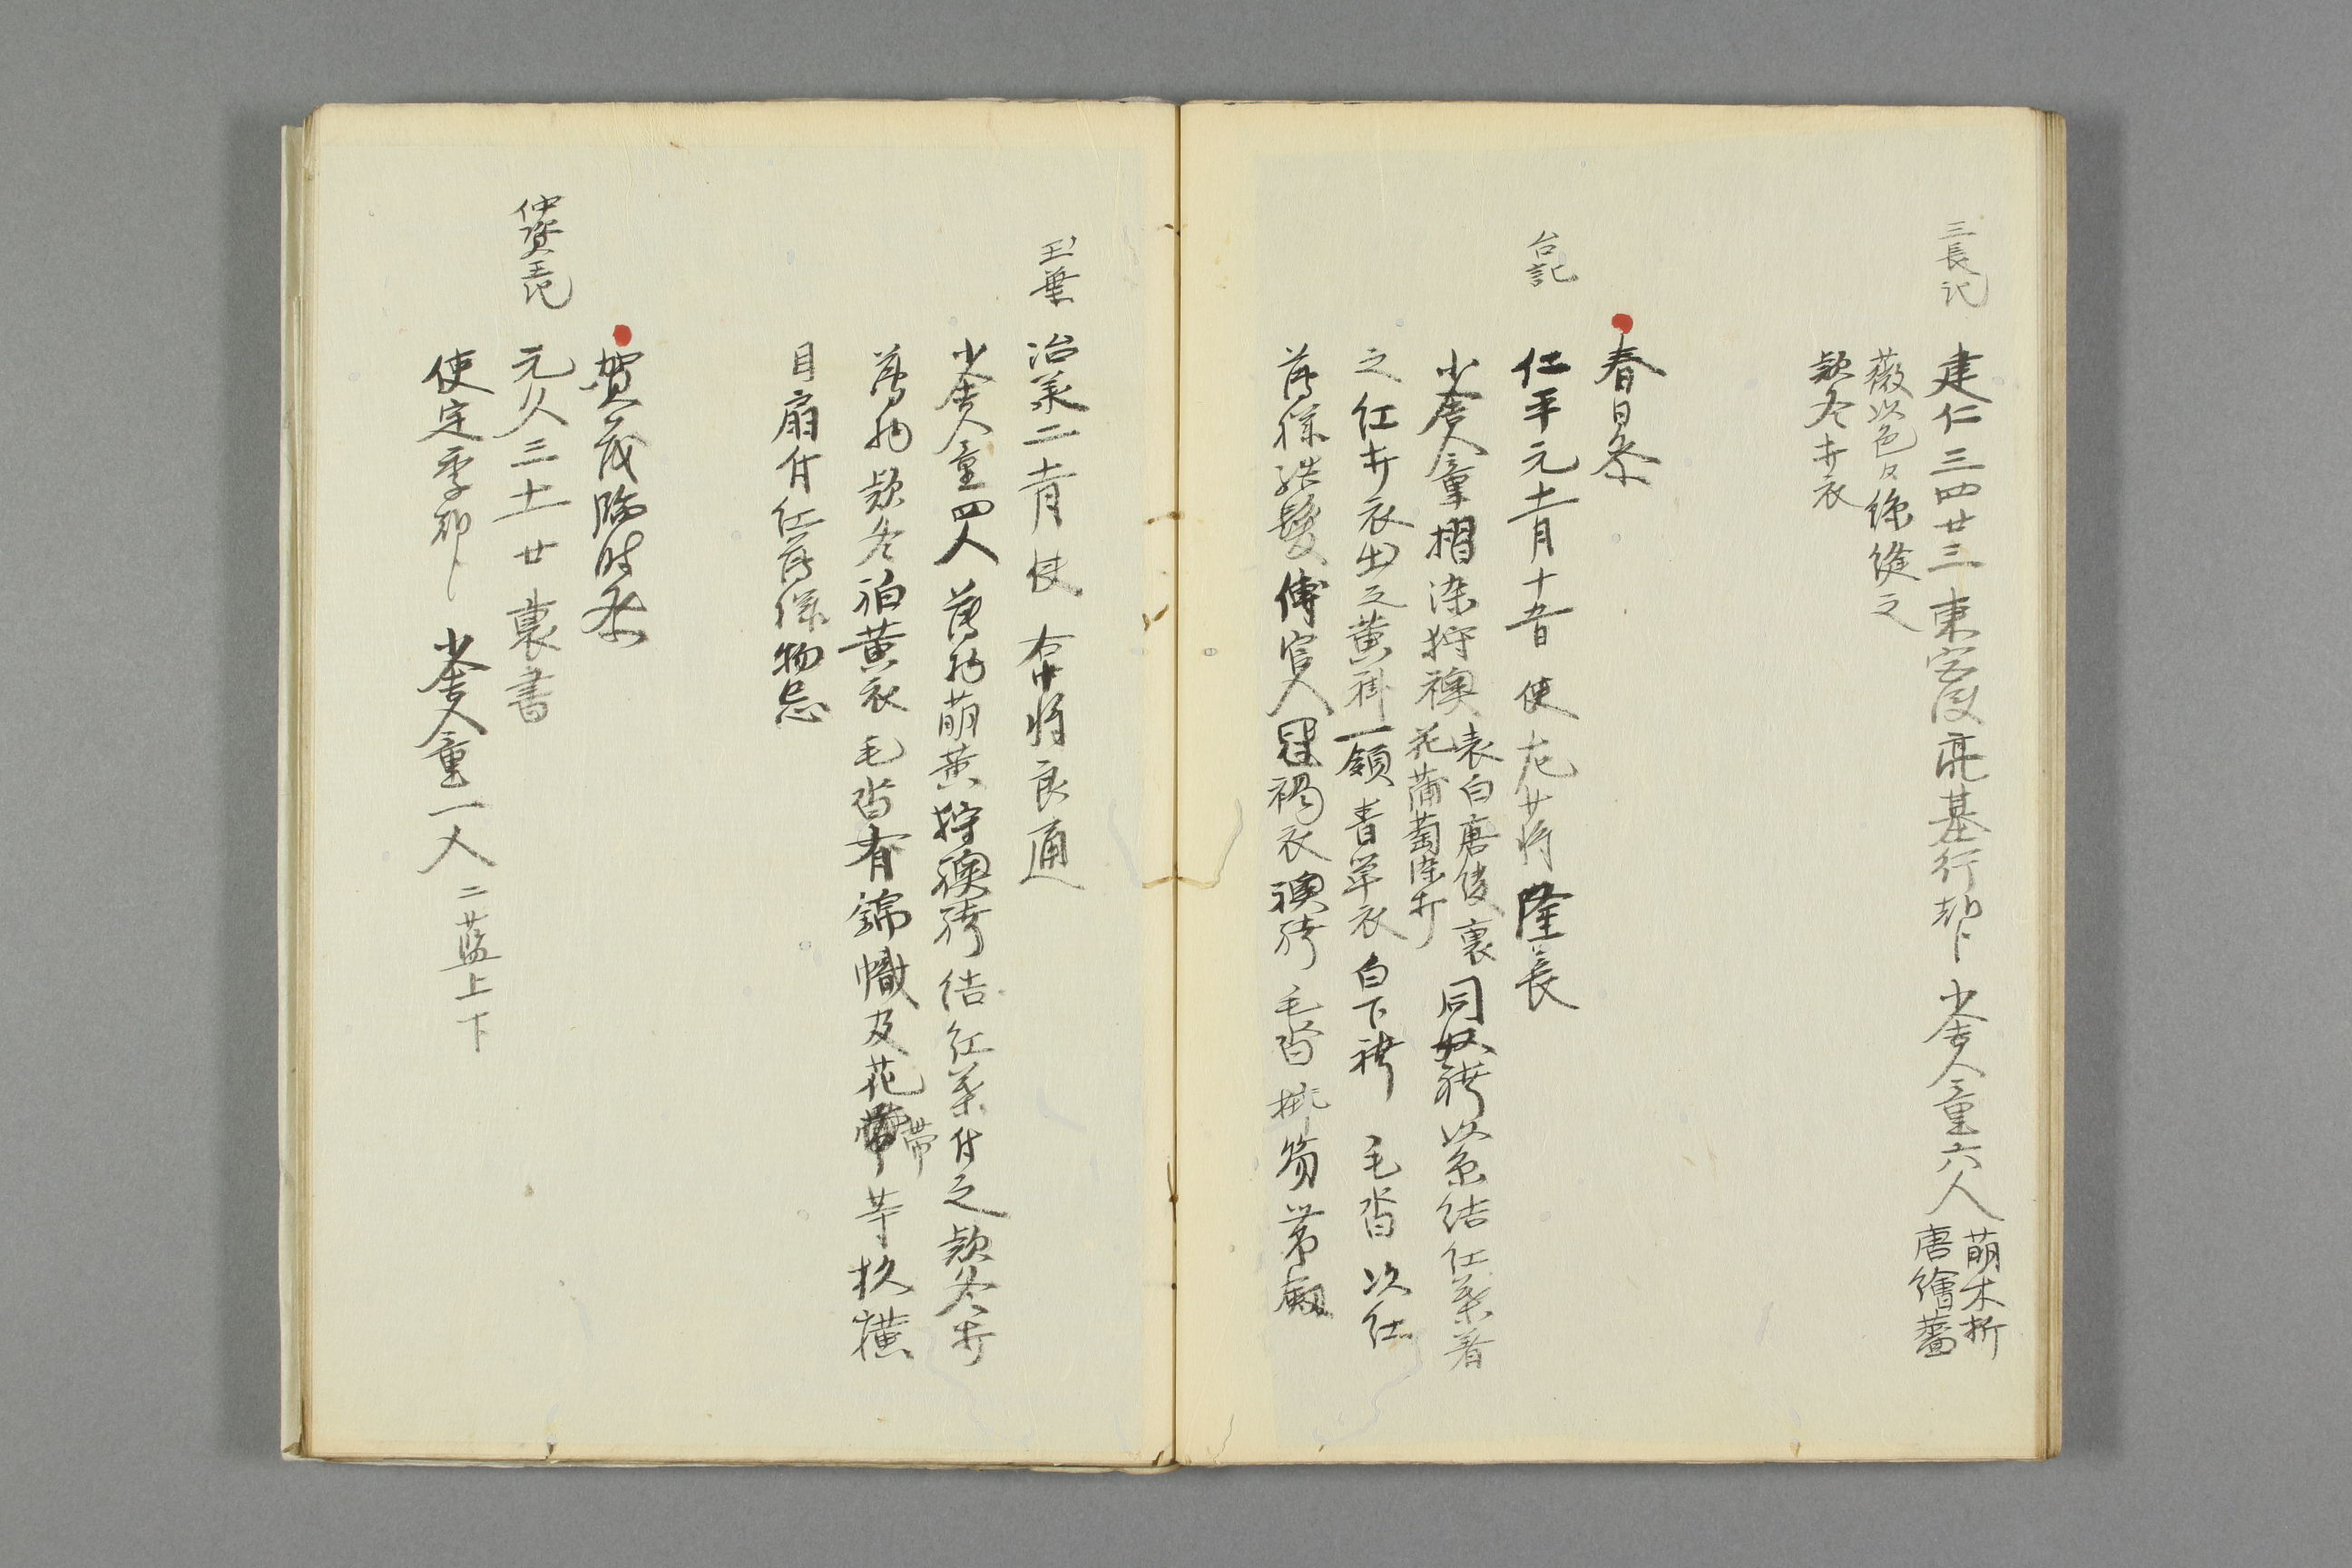 三長記
建仁三四廿三 東宮使亮基行卿 小舎人童六人 萌木折
唐繪薔
薇以色々絲縫之
款冬打衣
春日祭
台記
仁平元十一月十五日 使左少将隆長
小舎人童摺染狩襖 表白唐綾裏
花蒲萄染打
同奴袴以糸結紅葉着
之紅打衣出之黄褂一領青単衣白下袴 毛沓 次紅
薄様結髪 傅官人冠褐衣襖袴 毛沓
玉葉
治承二十一月使 右中将良通
小舎人童四人 薄物萌黄狩襖袴結紅葉付之款冬打
薄物款冬衵黄衣 毛沓有錦幟及花帯 帯 等
目扇付紅薄様物忌
賀茂臨時祭
仲資王記
元久三十一廿 裏書
使定季卿 小舎人童一人 二藍上下